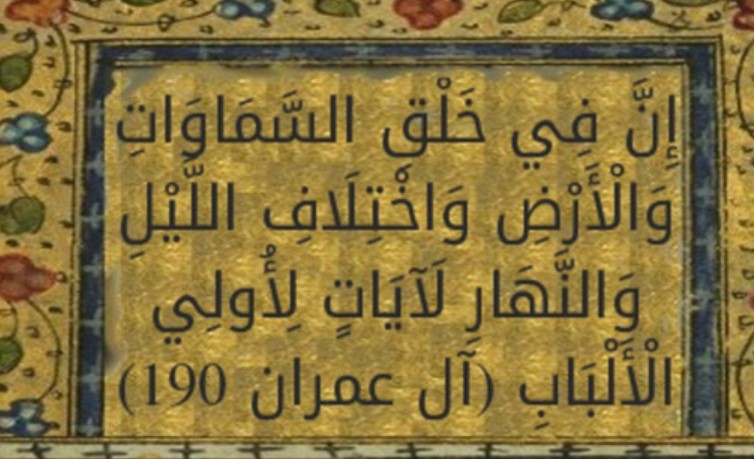 إِنَّ فِي خَلْقِ السَّمَاوَاتِ
وَالْأَرْضِ وَاخْتِلَافِ اللَّيْلِ
وَالنَّهَارِ لَآيَاتٍ لِأُولِي
الْأَلْبَابِ (آل عمران 190)